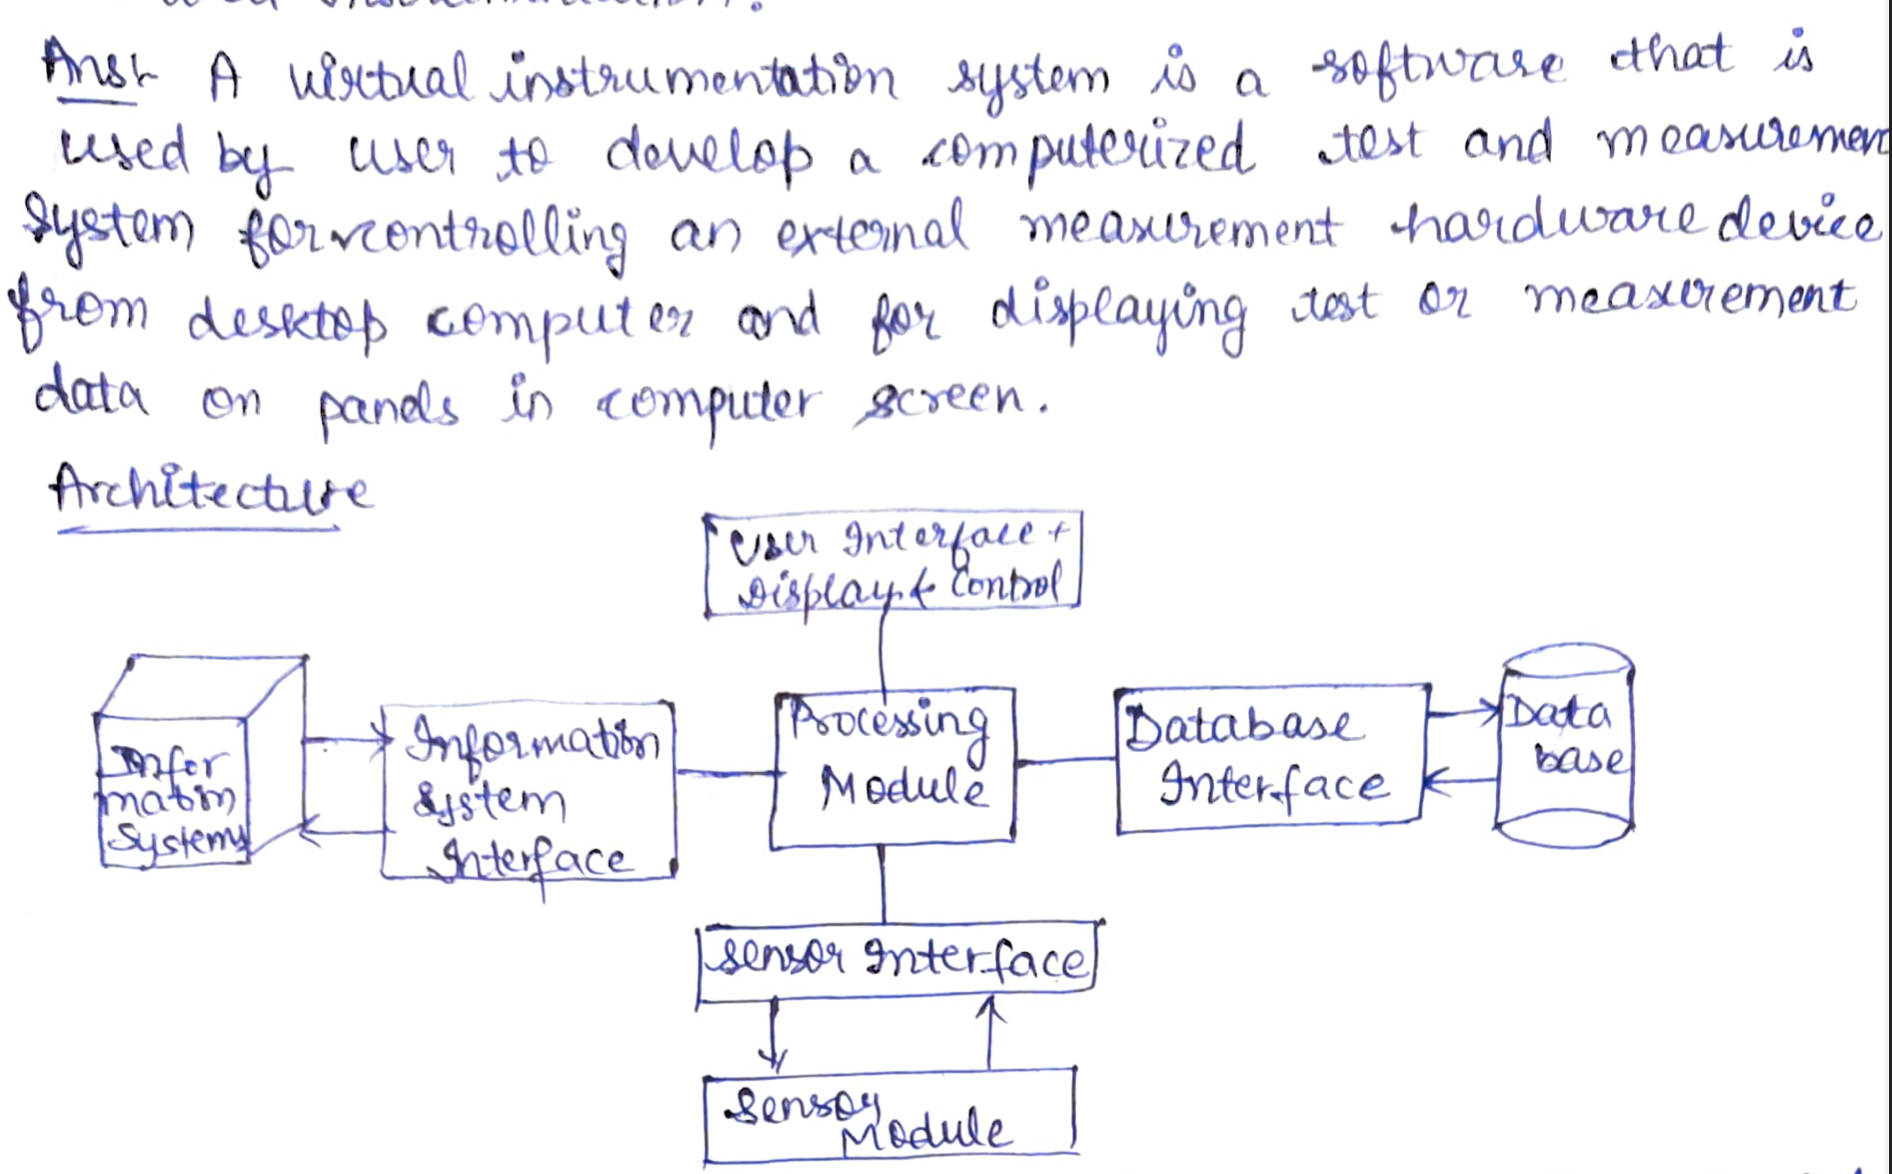 Ans:- A virtual instrumentation system is a software that is
used by user to develop a computerized test and measuremen
system for controlling an external measurement hardware device
from desktop computer and for displaying test or measurement
data on panels in computer screen.
Architecture
User Interface +
Display & Control
Infor
mation
Systems
Information
System
Interface
Processing
Module
Database
Interface
Data
base
Sensor Interface
Sensor
Module